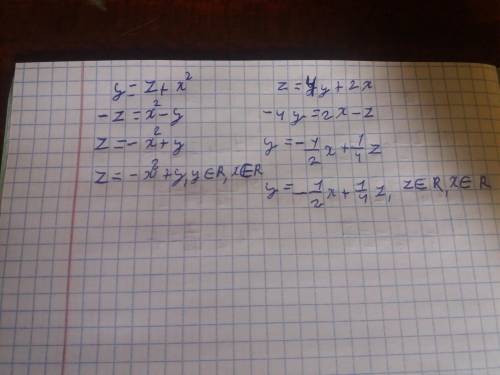 y = z + x²
-z = x² - y
z = -x² + y
z = -x² + y, y ∈ R, x ∈ R
z = 4y + 2x
-4y = 2x - z
y = -1/2 x + 1/4 z
y = -1/2 x + 1/4 z, z ∈ R, x ∈ R